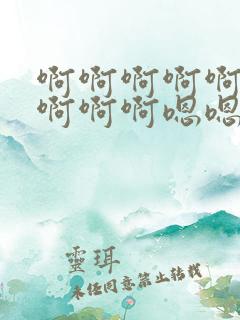 啊啊啊啊啊
啊啊啊嗯嗯
靈珥
未经同意禁止转载